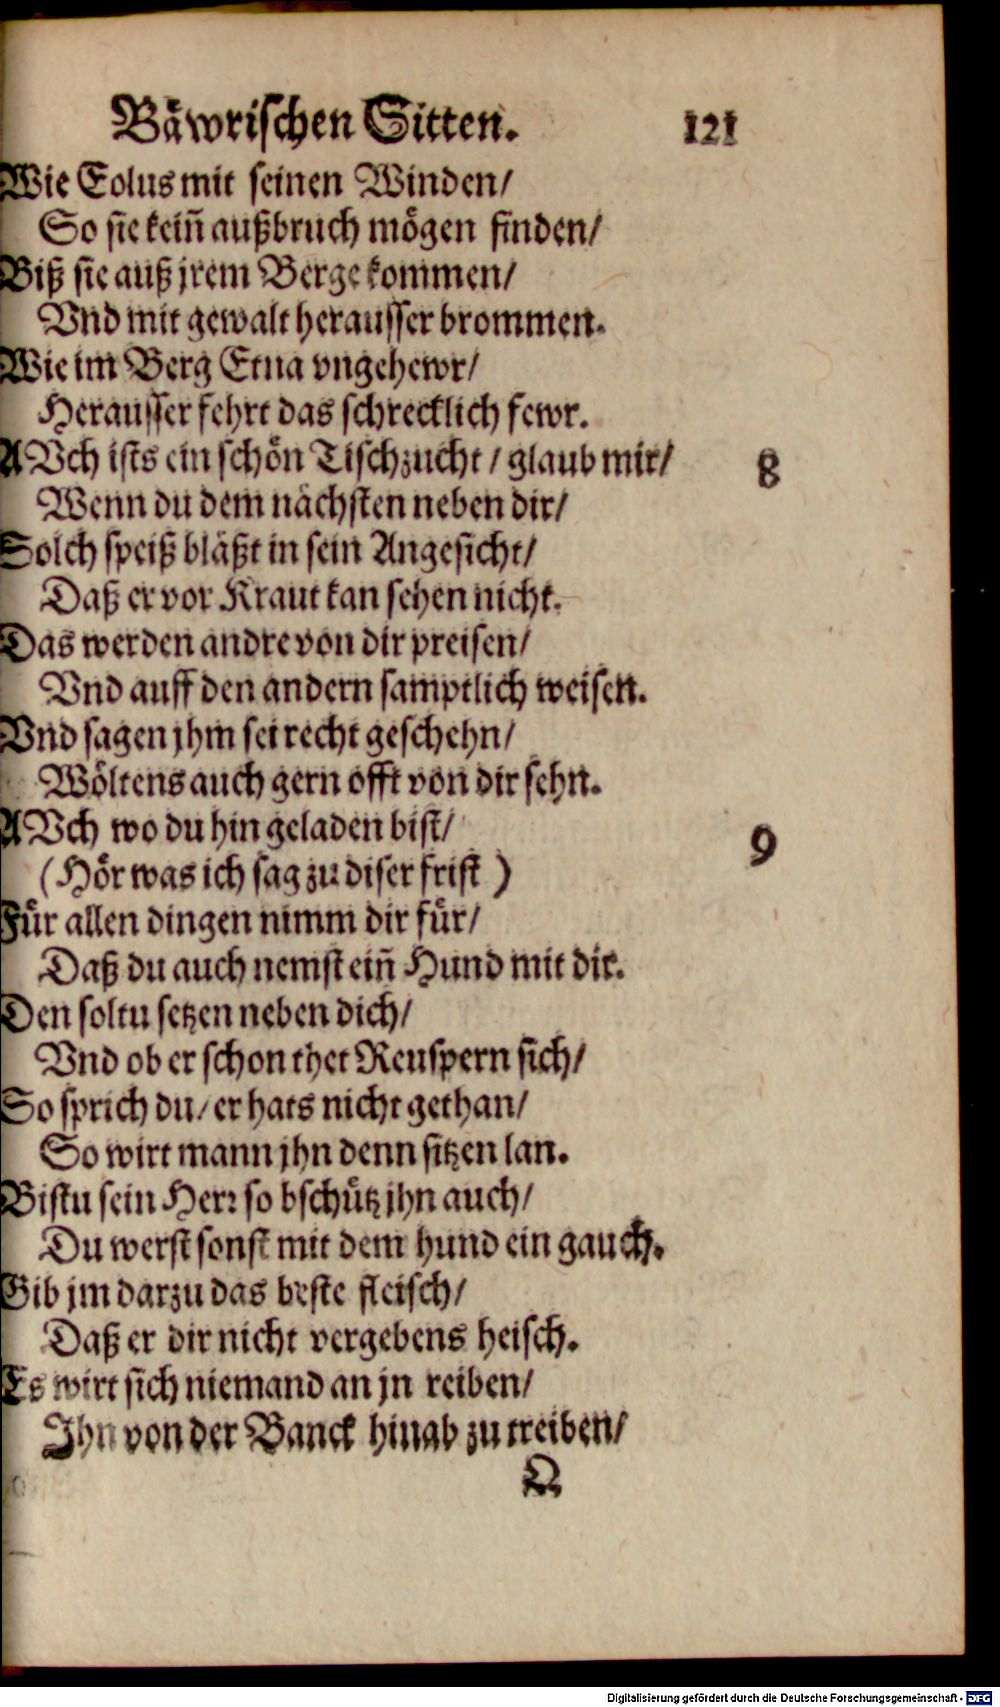 Bäwrischen Sitten. 121
Wie Eolus mit seinen Winden/
So sie keiñ außbruch mögen finden/
Biß sie auß jrem Berge kommen/
Vnd mit gewalt herausser brommen.
Wie im Berg Etna vngehewr/
Herausser fehrt das schrecklich fewr.
AVch ists ein schön Tischzucht / glaub mir/ 8
Wenn du dem nächsten neben dir/
Solch speiß bläßt in sein Angesicht/
Daß er vor Kraut kan sehen nicht.
Das werden andre von dir preisen/
Vnd auff den andern samptlich weisen.
Vnd sagen jhm sei recht geschehn/
Wöltens auch gern offt von dir sehn.
AVch wo du hin geladen bist/ 9
(Hör was ich sag zu diser frist )
Für allen dingen nimm dir für/
Daß du auch nemst eiñ Hund mit dir.
Den soltu setzen neben dich/
Vnd ob er schon thet Reuspern sich/
So sprich du/ er hats nicht gethan/
So wirt mann jhn denn sitzen lan.
Bistu sein Herr so bschütz jhn auch/
Du werst sonst mit dem hund ein gauch.
Gib jm darzu das beste fleisch/
Daß er dir nicht vergebens heisch.
Es wirt sich niemand an jn reiben/
Jhn von der Banck hinab zu treiben/
Q
Digitalisierung gefördert durch die Deutsche Forschungsgemeinschaft - DFG